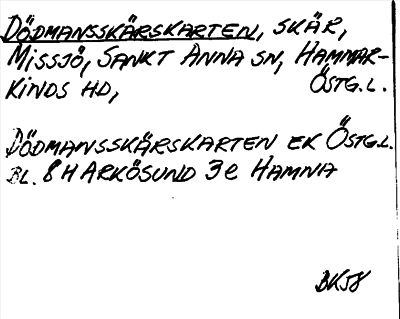 DÖDMANSSKÄRSKARTEN, SKÄR,
MISSJÖ, SANKT ANNA SN, HAMMAR-
KINDS HD, ÖSTG.L.
DÖDMANSSKÄRSKARTEN EK ÖSTG.L.
BL. 8 H ARKÖSUND 3e HAMNA
BK58